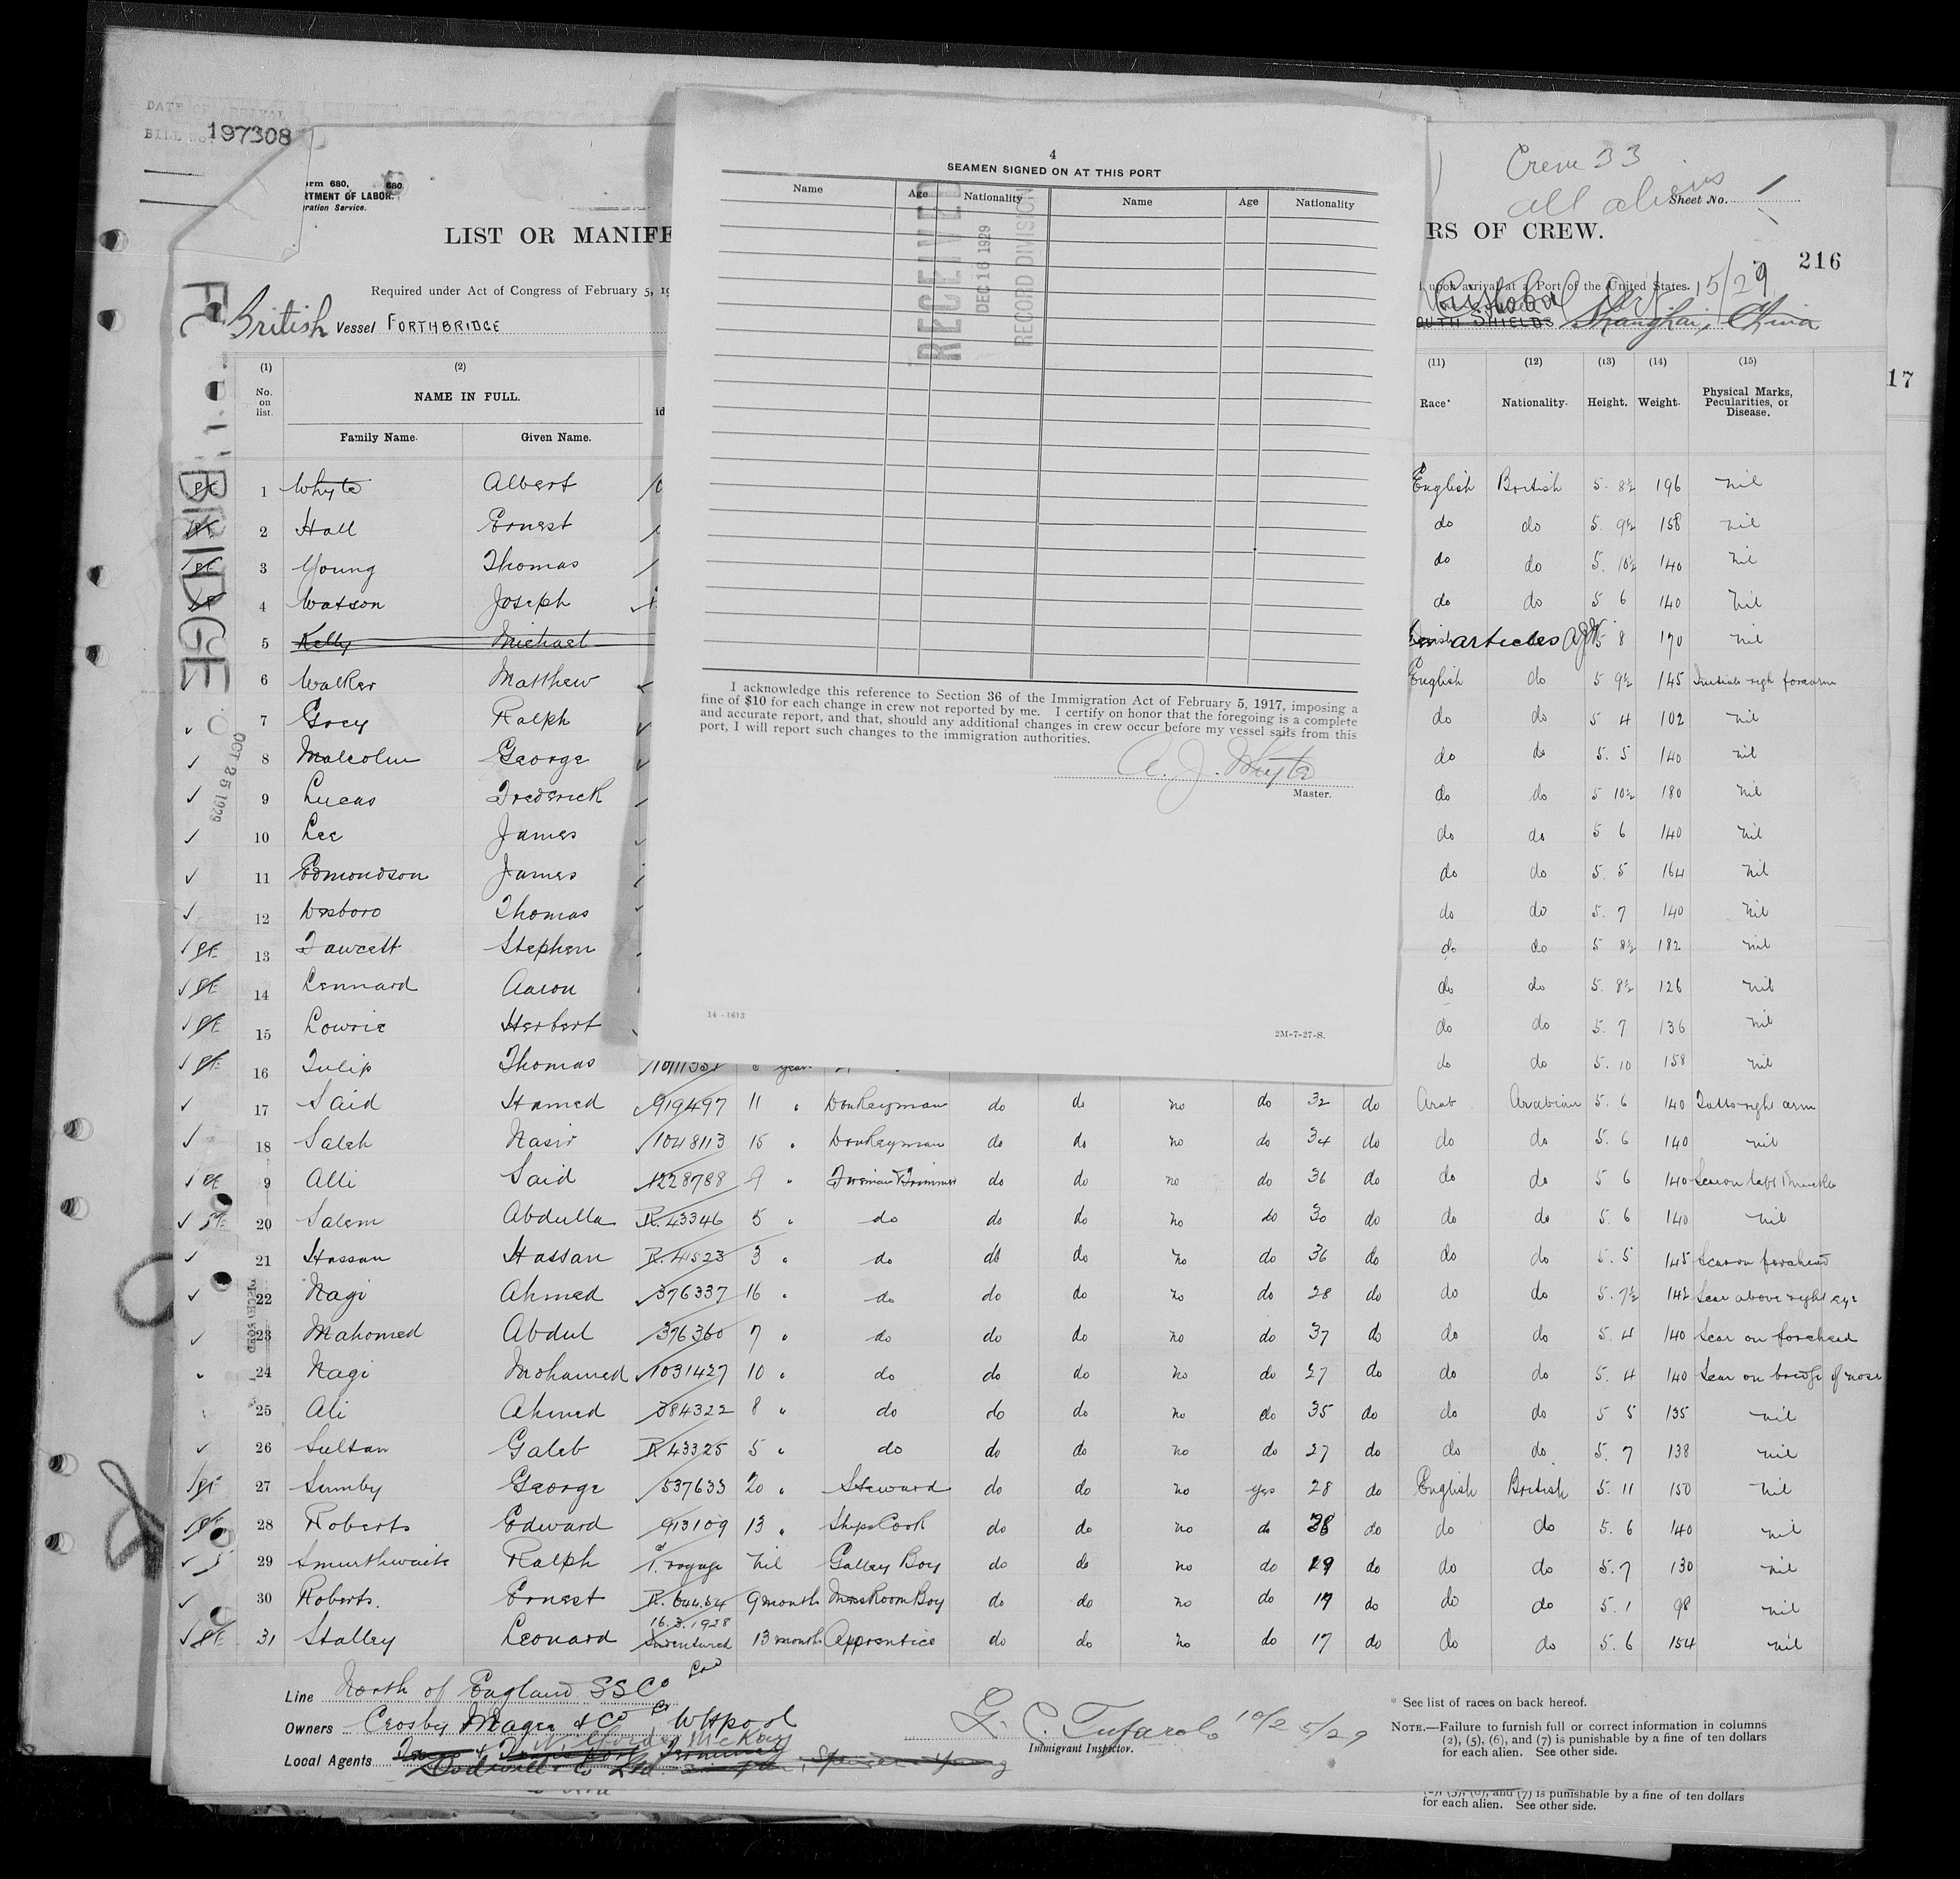 DATE OF ARRIVAL
BILL NO. 197308
orm 680, 680
RTMENT OF LABOR.
ration Service.
LIST OR MANIFE
Required under Act of Congress of February 5, 19
British Vessel FORTHBRIDGE
(1) (2)
No. on list. NAME IN FULL.
Family Name. Given Name.
4
SEAMEN SIGNED ON AT THIS PORT
Name Age Nationality Name Age Nationality
RECEIVED
DEC 16 1929
RECORD DIVISION
I acknowledge this reference to Section 36 of the Immigration Act of February 5, 1917, imposing a
fine of $10 for each change in crew not reported by me. I certify on honor that the foregoing is a complete
and accurate report, and that, should any additional changes in crew occur before my vessel sails from this
port, I will report such changes to the immigration authorities.
A. J. Whyte
Master.
14-1613
2M-7-27-S.
Crew 33
all aliens
Sheet No. 1
RS OF CREW.
216
upon arrival at a Port of the United States.
Cristobal 15/29
OUTH SHIELDS Shanghai, China
(11) (12) (13) (14) (15)
Race* Nationality. Height. Weight. Physical Marks, Pecularities, or Disease.
17
BRIDGE
OCT 25 1929
1 Whyte Albert English British 5. 8½ 196 nil
2 Hall Ernest do do 5. 9½ 158 nil
3 Young Thomas do do 5. 10½ 140 nil
4 Watson Joseph do do 5 6 140 nil
5 Kelly Michael articles 5 8 170 nil
6 Walker Matthew English do 5 9½ 145 Initials righ forearm
7 Grey Ralph do do 5 4 102 nil
8 Malcolm George do do 5. 5 140 nil
9 Lucas Frederick do do 5 10½ 180 nil
10 Lee James do do 5 6 140 nil
11 Edmondson James do do 5. 5 164 nil
12 Thomas do do 5. 7 140 nil
13 Fawcett Stephen do do 5 8½ 182 nil
14 Lennard Aaron do do 5. 8½ 126 nil
15 Lowrie Herbert do do 5. 7 136 nil
16 Tulip Thomas do do 5. 10 158 nil
17 Said Hamed 919497 11 " Donkeyman do do no do 32 do Arab Arabian 5. 6 140 Tatto right arm
18 Saleh Nasir 1048113 15 " Donkeyman do do no do 34 do do do 5. 6 140 nil
9 Alli Said 1228788 9 " Fireman Trimmer do do no do 36 do do do 5 6 140 Scar on left
20 Salem Abdulla R. 43346 5 " do do do no do 30 do do do 5. 6 140 nil
21 Hassan Hassan R. 41523 3 " do do do no do 36 do do do 5. 5 145 Scar on forehead
22 Nagi Ahmed 376337 16 " do do do no do 28 do do do 5. 7½ 142 Scar above right eye
23 Mahomed Abdul 376360 7 " do do do no do 37 do do do 5. 4 140 Scar on forehead
24 Nagi Mohamed 1031427 10 " do do do no do 27 do do do 5. 4 140 Scar on bridge of nose
25 Ali Ahmed 384322 8 " do do do no do 35 do do do 5 5 135 nil
26 Sultan Galeb R 43325 5 " do do do no do 27 do do do 5. 7 138 nil
27 Sumby George 537633 20 " Steward do do no yes 28 do English British 5. 11 150 nil
28 Roberts Edward 913109 13 " Ships Cook do do no do 38 do do do 5. 6 140 nil
29 Smurthwaite Ralph 1st voyage nil Galley Boy do do no do 19 do do do 5. 7 130 nil
30 Roberts. Ernest 9 months Mess Room Boy do do no do 19 do do do 5. 1 98 nil
16.3.1928
31 Stalley Leonard Indentured 13 months Apprentice do do no do 17 do do do 5. 6 154 nil
Line North of England SS Co Ltd
Owners Crosby Magee & Co W Hpool
Local Agents
Dodwell & Co Ltd.
G. C. Tufarolo 10/25/29
Immigrant Inspector.
* See list of races on back hereof.
NOTE.—Failure to furnish full or correct information in columns
(2), (5), (6), and (7) is punishable by a fine of ten dollars
for each alien. See other side.
(2), (5), (6), and (7) is punishable by a fine of ten dollars
for each alien. See other side.